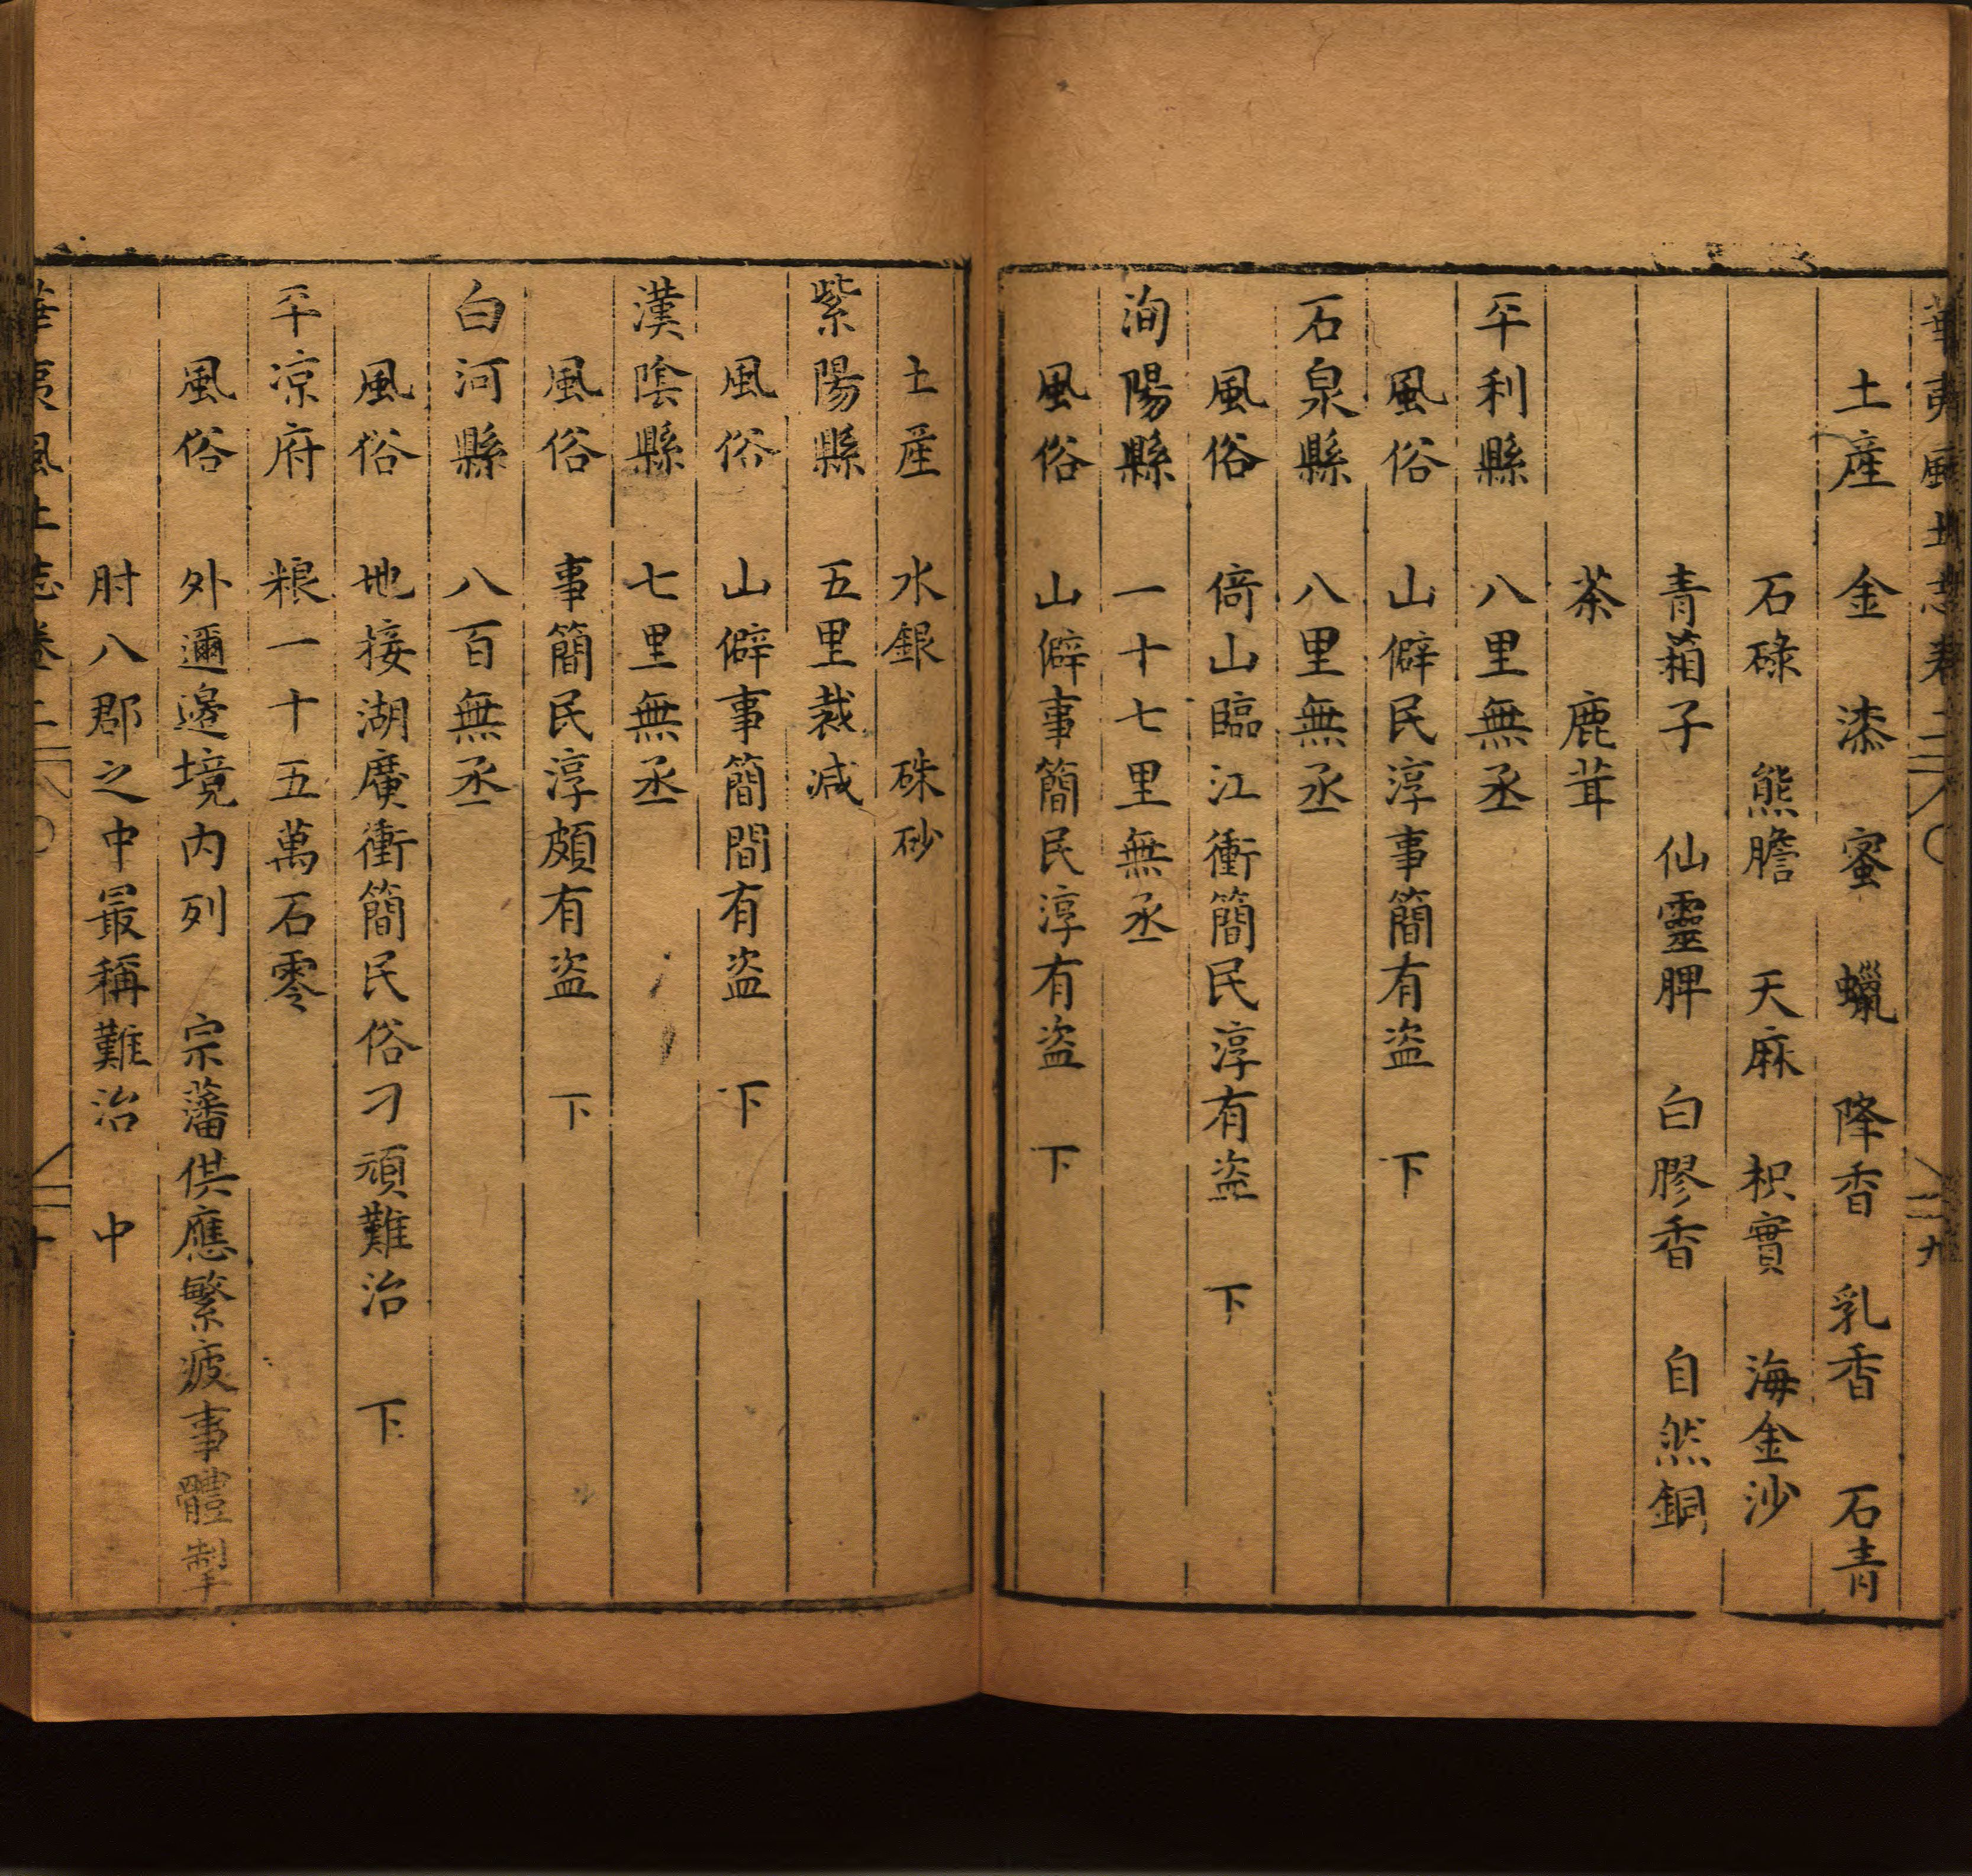 華夷風土志卷二
九
土產 金 漆 蜜 蠟 降香 乳香 石青
石碌 熊膽 天麻 枳實 海金沙
青葙子 仙靈脾 白膠香 自然銅
茶 鹿茸
平利縣 八里無丞
風俗 山僻民淳事簡有盜 下
石泉縣 八里無丞
風俗 倚山臨江衝簡民淳有盜 下
洵陽縣 一十七里無丞
風俗 山僻事簡民淳有盜 下
土產 水銀 硃砂
紫陽縣 五里裁减
風俗 山僻事簡間有盜 下
漢陰縣 七里無丞
風俗 事簡民淳頗有盜 下
白河縣 八百無丞
風俗 地接湖廣衝簡民俗刁頑難治 下
平凉府 粮一十五萬石零
風俗 外邇邊境内列 宗藩供應繁疲事體掣
肘八郡之中最稱難治 中
華夷風土志卷二
十